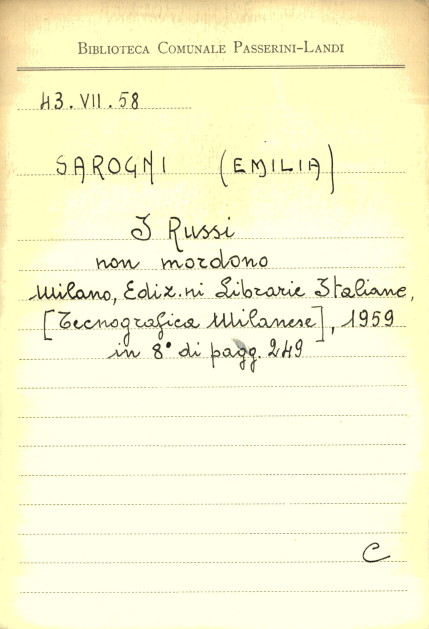 BIBLIOTECA COMUNALE PASSERINI-LANDI
43.VII.58
SAROGNI (EMILIA)
I Russi
non mordono
Milano, Ediz.ni Librarie Italiane,
[Tecnografica Milanese], 1959
in 8° di pagg. 249
C